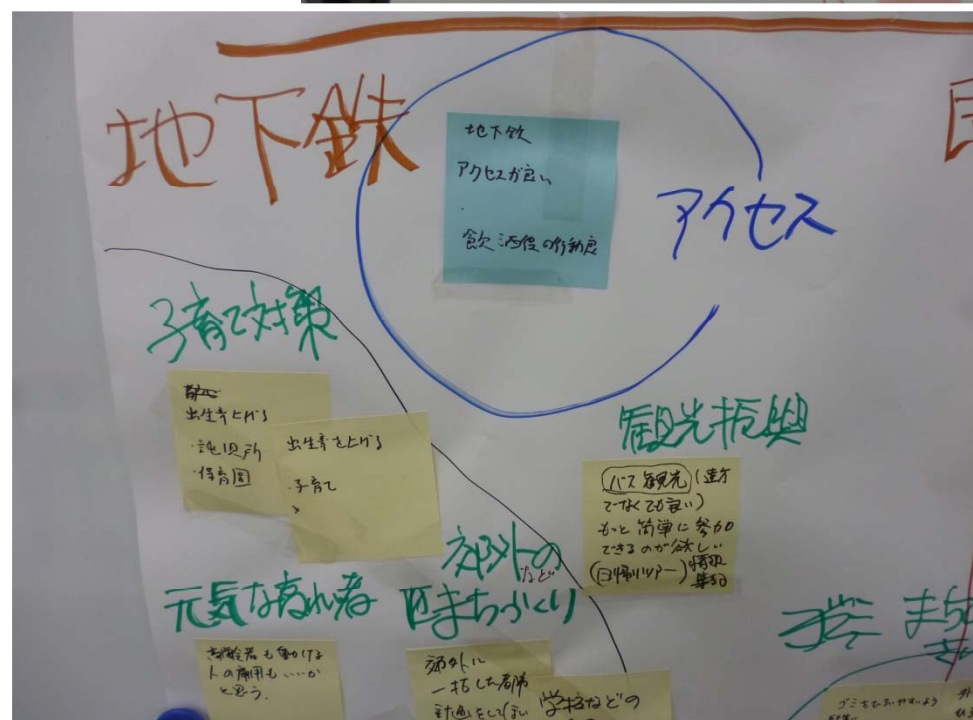 地下鉄
地下鉄
アクセスが良い
飲酒後の行動良
アクセス
子育て対策
出生率上げる
・託児所
・保育園
出生率を上げる
・子育て
観光振興
バス観光(遠方
でなくても良い)
もっと簡単に参加
できるのが欲しい
(日帰りツアー)
郊外の
など
まちづくり
元気な高齢者
高齢者も働ける
人の雇用も いいか
と思う。
郊外に
一括した都市
計画をしてほしい
学校などの
ゴミをひろいやすいよう